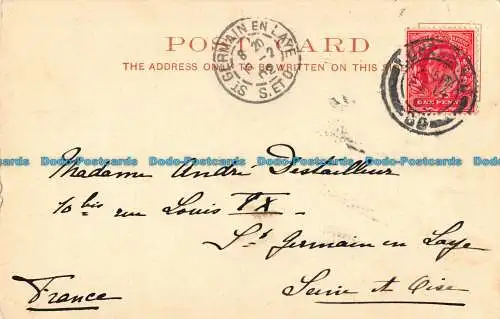 POST CARD
THE ADDRESS ONLY TO BE WRITTEN ON THIS
ST GERMAIN EN LAYE
8 20
12
02
S. ET O.
ONE PENNY
Madame André Destailleur
10 bis rue Louis IX
St Germain en Laye
Seine et Oise
France
Dodo-Postcards Dodo-Postcards Dodo-Postcards Dodo-Postcards